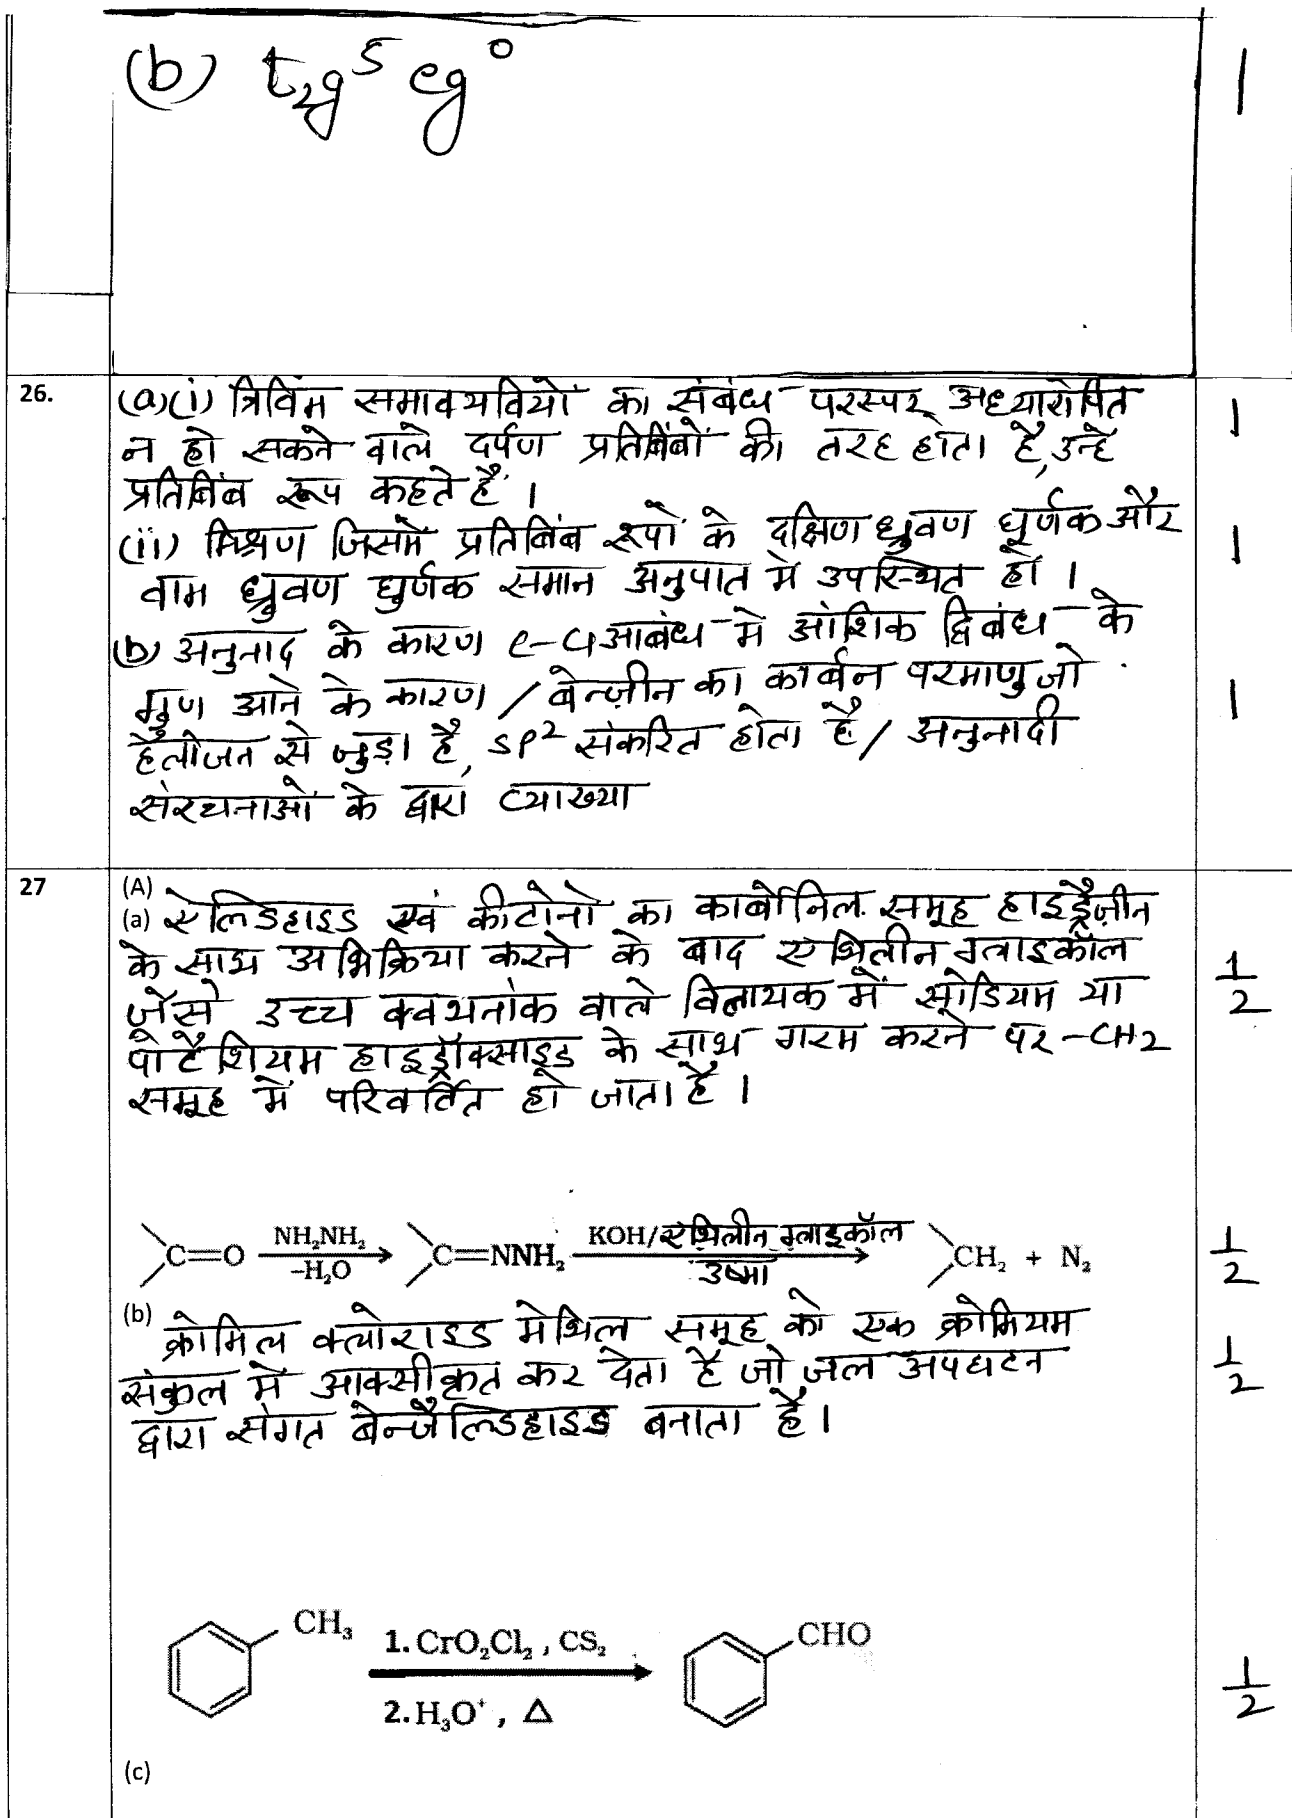 (b) t₂g⁵ eg⁰
1
26.
(a)(i) त्रिविम समावयवियों का संबंध परस्पर अध्यारोपित
1
न हो सकने वाले दर्पण प्रतिबिंबों की तरह होता है, उन्हें
प्रतिबिंब रूप कहते हैं ।
(ii) मिश्रण जिसमें प्रतिबिंब रूपों के दक्षिण ध्रुवण घूर्णक और
1
वाम ध्रुवण घुर्णक समान अनुपात में उपस्थित हों ।
(b) अनुनाद के कारण c-Cl आबंध में आंशिक द्विबंध के
गुण आने के कारण / बेन्ज़ीन का कार्बन परमाणु जो
1
हैलोजन से जुड़ा है, sp² संकरित होता है / अनुनादी
संरचनाओं के द्वारा व्याख्या
27
(A)
(a) ऐल्डिहाइड एवं कीटोनो का कार्बोनिल समूह हाइड्रैज़ीन
के साथ अभिक्रिया करने के बाद एथिलीन ग्लाइकॉल
1/2
जैसे उच्च क्वथनांक वाले विलायक में सोडियम या
पोटैशियम हाइड्रॉक्साइड के साथ गरम करने पर -CH2
समूह में परिवर्तित हो जाता है ।
C=O NH₂NH₂ -H₂O C=NNH₂ KOH/एथिलीन ग्लाइकॉल उष्मा CH₂ + N₂
1/2
(b)
क्रोमिल क्लोराइड मेथिल समूह को एक क्रोमियम
संकुल में आक्सीकृत कर देता है जो जल अपघटन
1/2
द्वारा संगत बेन्जैल्डिहाइड बनाता है ।
CH₃ 1. CrO₂Cl₂ , CS₂ CHO
2. H₃O⁺ , Δ
1/2
(c)